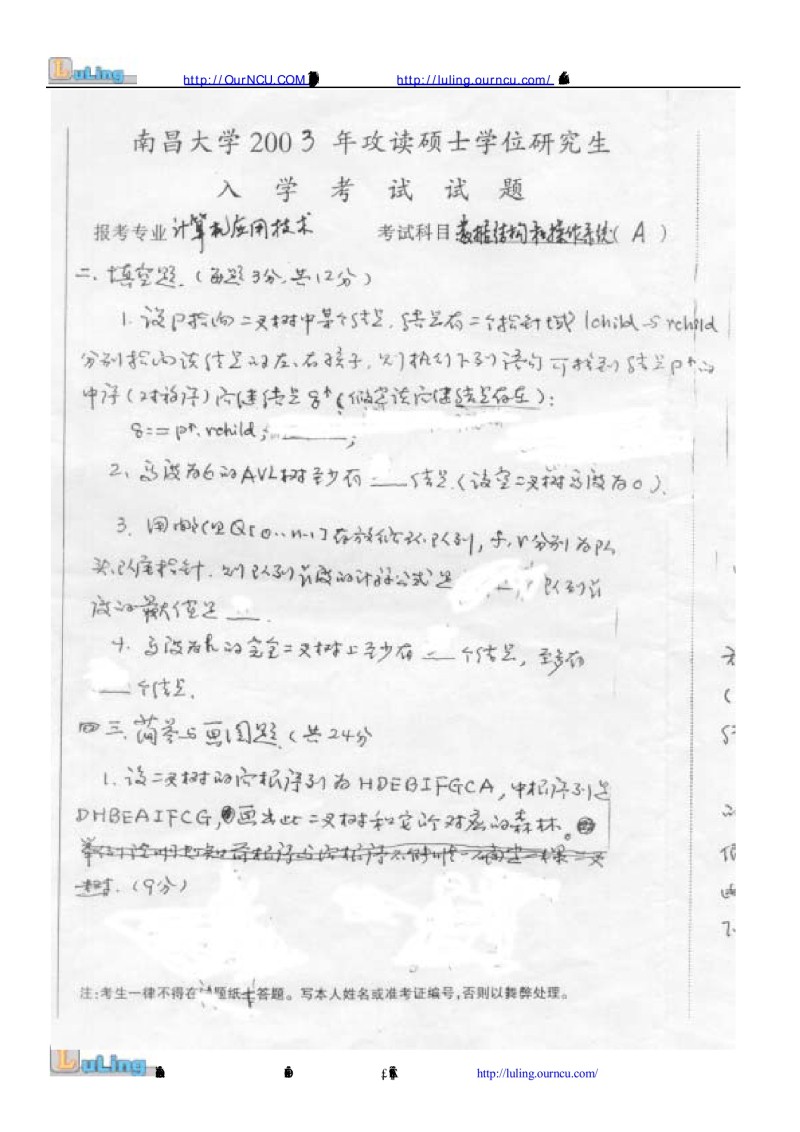 LuLing
http://OurNCU.COM
http://luling.ourncu.com/
南昌大学2003年攻读硕士学位研究生
入学考试试题
报考专业 计算机应用技术 考试科目 数据结构和操作系统(A)
二、填空题.(每题3分,共12分)
1. 设P指向二叉树中某个结点,结点有二个指针域lchild与rchild
分别指向该结点的左、右孩子,则执行下列语句可找到结点p↑的
中序(对称序)后继结点q↑(假定该后继结点存在):
q:=p↑.rchild; ____;
2、高度为6的AVL树至少有____结点.(设空二叉树高度为0).
3. 用 Q[0..n-1]存放循环队列,f、r分别为队
头、队尾指针.则队列长度的计算公式是____,队列长
度的最大值是____.
4. 高度为h的完全二叉树上至少有____个结点,至多有
____个结点.
四三、简答与画图题(共24分
1. 设二叉树的后根序列为HDEBIFGCA,中根序列是
DHBEAIFCG,画出此二叉树和它所对应的森林。
树.(9分)
注:考生一律不得在试题纸上答题。写本人姓名或准考证编号,否则以舞弊处理。
LuLing
http://luling.ourncu.com/